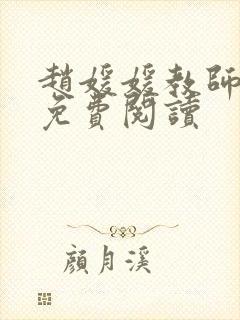 趙媛媛教師
免費閱讀
顔月溪